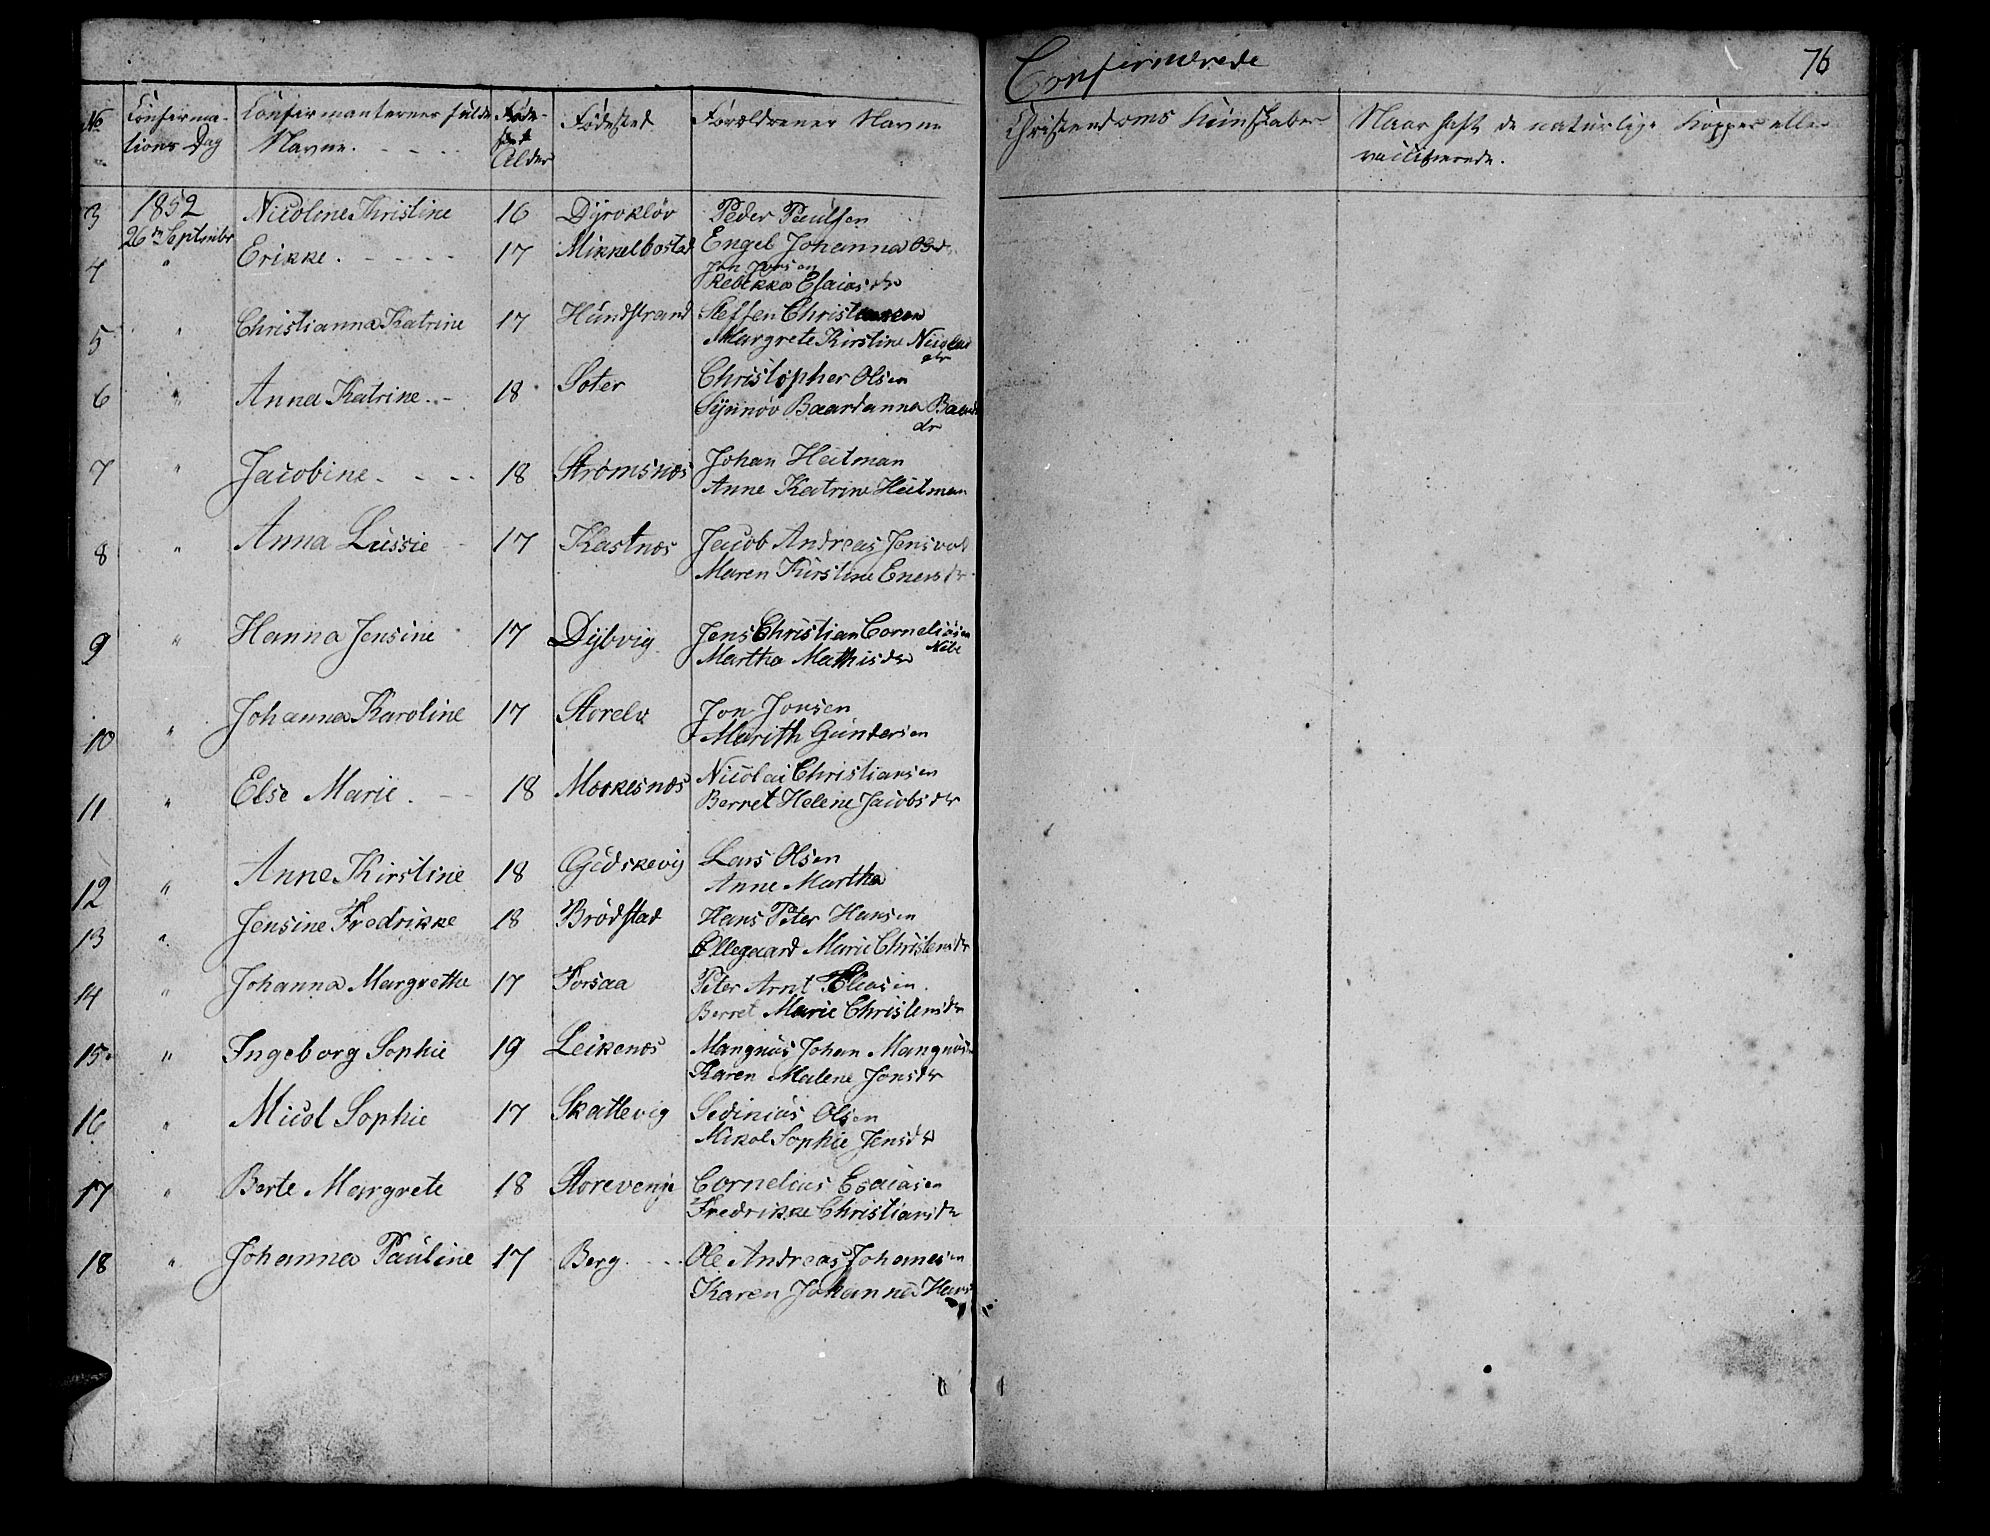 Confirmerede
76
No
Confirma-
tions Dag
Confirmanternes fulde
Navne. - - - -
Føde-
sted
Alder
Fødested
Forældrenes Navne
Christendoms Kundskaber
Naar haft de naturlige Kopper eller
vaccinerede.
3 1852 Nicoline Kristine 16 Dyrokløv Peder Paulsen
26n Septmbr Engel Johanna
4 " Erikke. - - - - - 17 Mikkelbostad Jon Jonsen
Rebekka Esaiasdr
5 " Christianna Katrine 17 Hundstrand Steffen Christensen
Margrete Kirstine Nicolai
dr
6 " Anna Katrine. - 18 Soter Christopher Olsen
Synnøv Baardanna Baards
dr
7 " Jacobine. - - - 18 Strømsnæs Johan Heitman
Anne Katrine Heitman
8 " Anna Lussie - 17 Kastnæs Jacob Andreas Jensvol
Maren Kirstine Enersdr
9 " Hanna Jensine 17 Dybvig Jens Christian Corneliusen
Nibe
Martha Mathisdr
10 " Johanna Karoline 17 Storelv Jon Jonsen
Marith Gundersen
11 " Else Marie. - - 18 Morkesnæs Nicolai Christiansen
Berret Helene Jacobsdr
12 " Anne Kirstine 18 Gidskevig Lars Olsen
Anne Martha
13 " Jensine Fredrikke 18 Brødstad Hans Peter Hansen
Ollegaard Marie Christensdr
14 " Johanna Margrethe 17 Forsaa Peter Arnt Eliasen.
Berret Marie Christensdr
15. " Ingeborg Sophie 19 Leikenæs Mangnus Johan Mangnus
Karen Malene Jonsdr
16 " Micol Sophie 17 Skatlevig Sedinius Olsen
Mikol Sophie Jensdr
17 " Berte Margrete 18 Storevenje Cornelius Esaiasen
Fredrikke Christiansdr
18 " Johanna Pauline 17 Berg. - - Ole Andreas Johanesen
Karen Johanna Hans